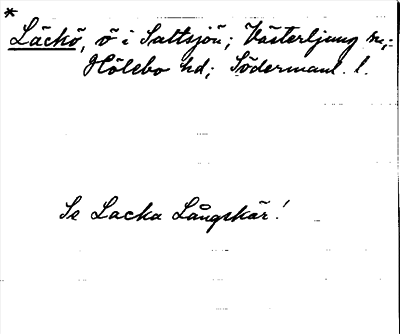 *
Läckö, ö i Saltsjön; Västerljung sn;
Hölebo hd; Södermanl. l.
Se Lacka Långskär!